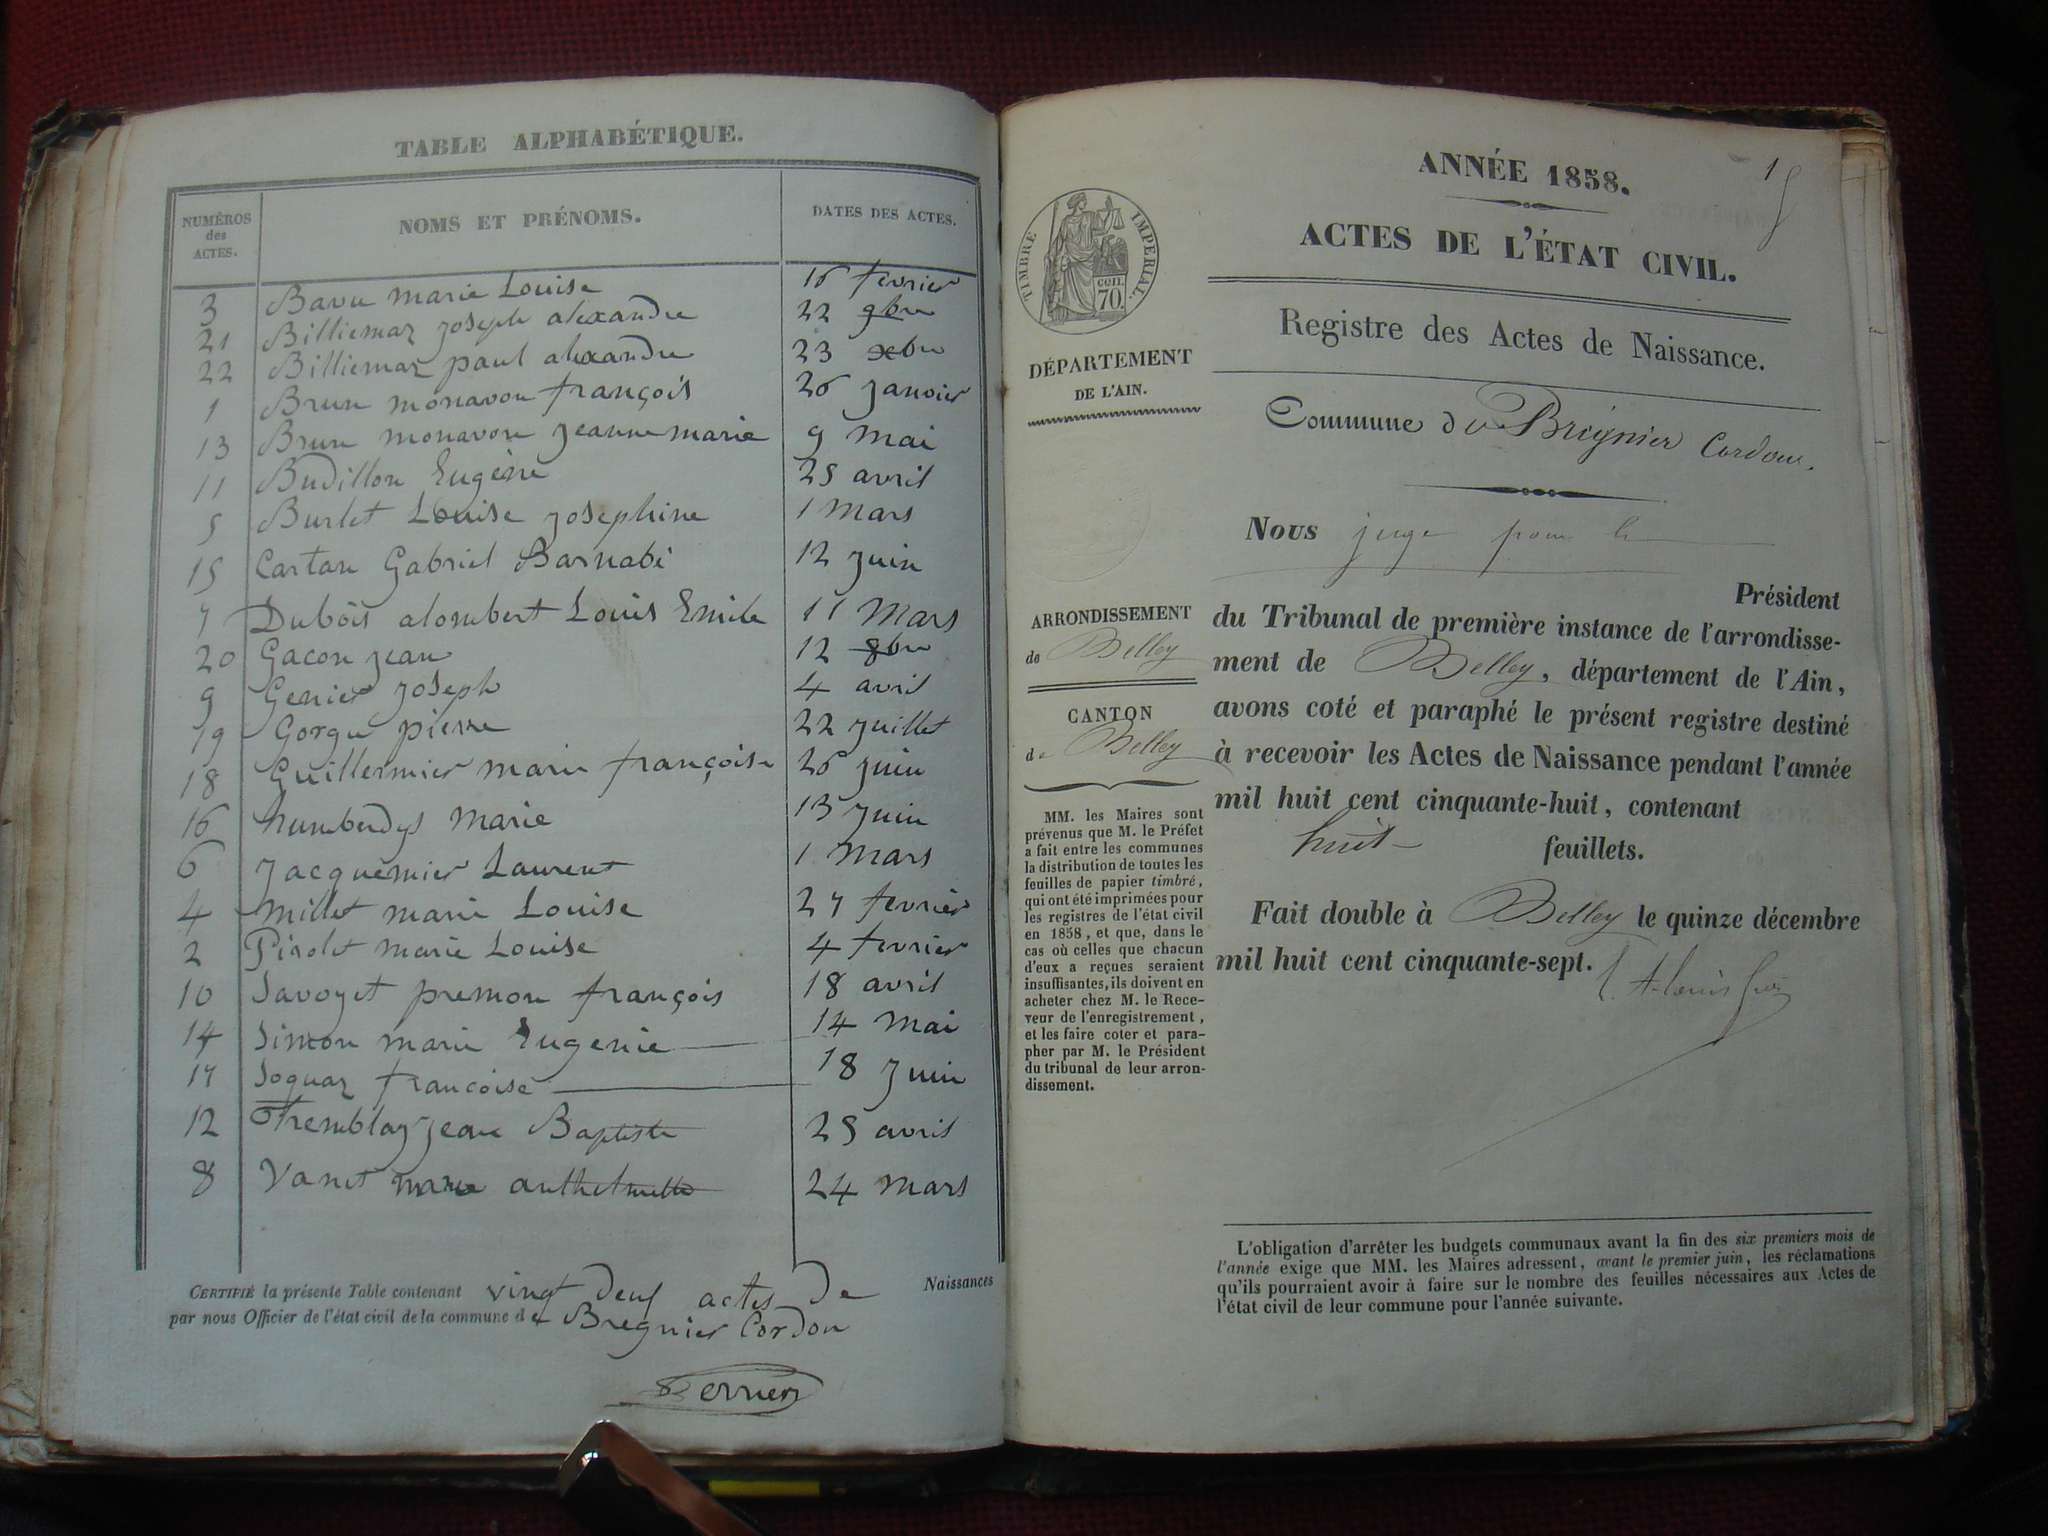 TABLE ALPHABÉTIQUE.
NUMÉROS des ACTES. NOMS ET PRÉNOMS. DATES DES ACTES.
3 Bavu marie Louise 16 fevrier
21 Billiemaz joseph alexandre 22 9bre
22 Billiemaz paul alexandre 23 xbre
1 Brun monavon françois 26 janvier
13 Brun monavon jeanne marie 9 mai
11 Budillon Eugène 25 avril
5 Burlet Louise josephine 1 Mars
15 Cartan Gabriel Barnabé 12 juin
7 Dubois alombert Louis Emile 11 Mars
20 Gacon jean 12 8bre
9 Genier joseph 4 avril
19 Gorgu pierre 22 juillet
18 Guillermier marie françoise 26 juin
16 humberdys Marie 13 juin
6 Jacquemier Laurent 1 Mars
4 Millet marie Louise 27 fevrier
2 Pirolet marie Louise 4 fevrier
10 Savoyet premon françois 18 avril
14 Simon marie Eugenie 14 Mai
17 Soquaz francoise 18 Juin
12 Tremblay jean Baptiste 25 avril
8 Vanet marie anthelmette 24 Mars
CERTIFIÉ la présente Table contenant vingt deux actes de Naissances
par nous Officier de l'état civil de la commune de Bregnier Cordon
Perrier
1
ANNÉE 1858.
ACTES DE L'ÉTAT CIVIL.
Registre des Actes de Naissance.
TIMBRE IMPERIAL.
CENT. 70.
DÉPARTEMENT
DE L'AIN.
Commune de Brégnier Cordon.
Nous juge pour le
Président
du Tribunal de première instance de l'arrondisse-
ment de Belley, département de l'Ain,
avons coté et paraphé le présent registre destiné
à recevoir les Actes de Naissance pendant l'année
mil huit cent cinquante-huit, contenant
huit feuillets.
Fait double à Belley le quinze décembre
mil huit cent cinquante-sept.
ARRONDISSEMENT
de Belley
CANTON
de Belley
MM. les Maires sont
prévenus que M. le Préfet
a fait entre les communes
la distribution de toutes les
feuilles de papier timbré,
qui ont été imprimées pour
les registres de l'état civil
en 1858, et que, dans le
cas où celles que chacun
d'eux a reçues seraient
insuffisantes, ils doivent en
acheter chez M. le Rece-
veur de l'enregistrement,
et les faire coter et para-
pher par M. le Président
du tribunal de leur arron-
dissement.
L'obligation d'arrêter les budgets communaux avant la fin des six premiers mois de
l'année exige que MM. les Maires adressent, avant le premier juin, les réclamations
qu'ils pourraient avoir à faire sur le nombre des feuilles nécessaires aux Actes de
l'état civil de leur commune pour l'année suivante.